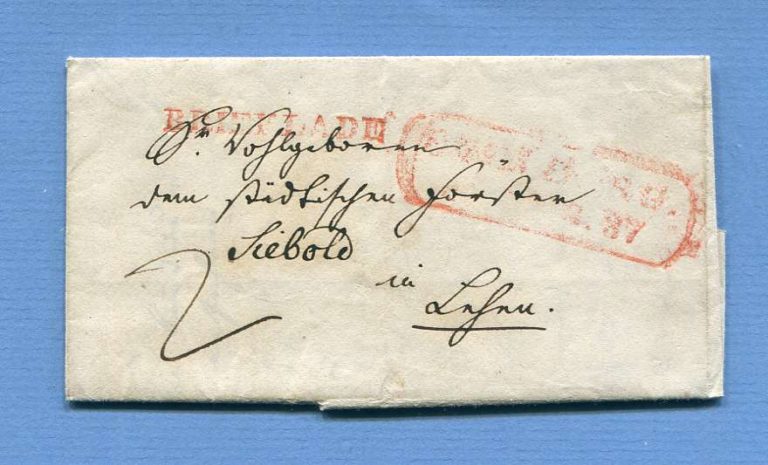 BRIEFLADE
Sr. Wohlgeboren
dem städtischen Förster
Siebold
in
Lehen.
2
37